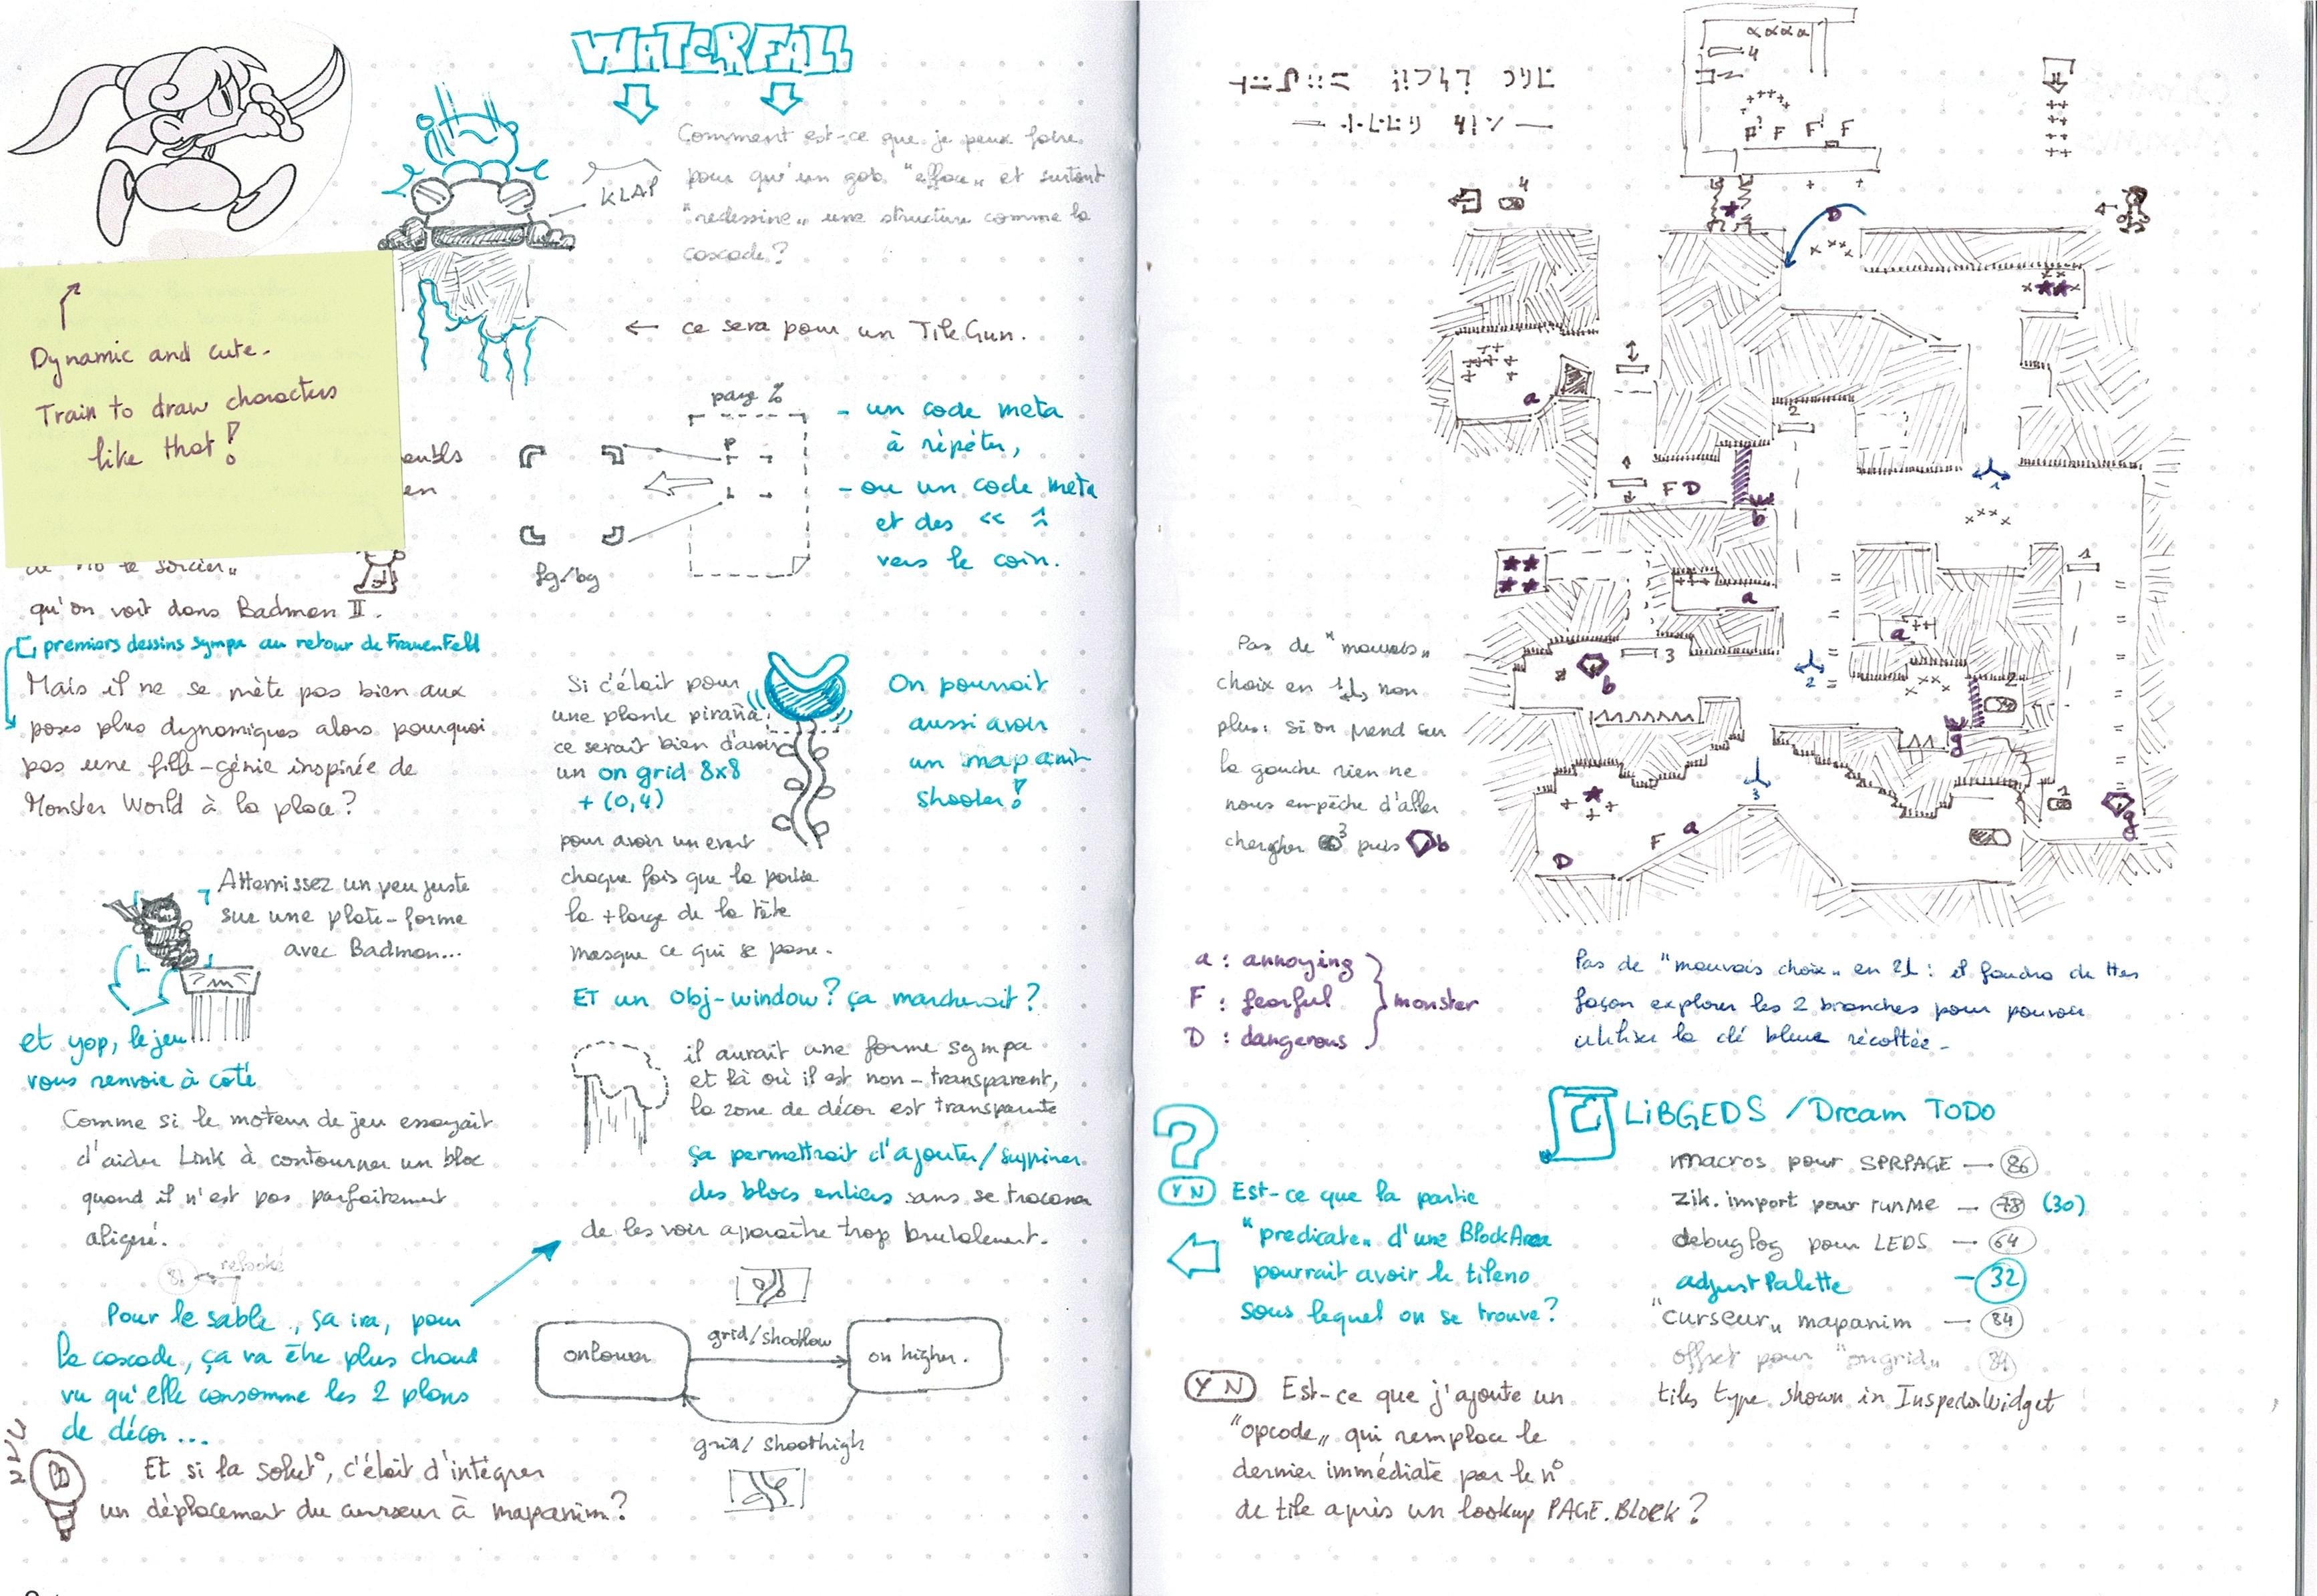 WATERFALL
Comment est-ce que je peux faire
pour qu'un gob "efface" et surtout
"redessine" une structure comme la
cascade?
KLAP
← ce sera pour un TileGun.
Dynamic and cute.
Train to draw characters
like that!
en
page %
- un code meta
à répéter,
- ou un code meta
et des <<
vers le coin.
fg/bg
sorcier"
qu'on voit dans Badman II.
premiers dessins sympa au retour de FrauenFeld
Mais il ne se mète pas bien aux
poses plus dynamiques alors pourquoi
pas une fille-génie inspirée de
Monster World à la place?
Si c'était pour
une plante piraña,
ce serait bien d'avoir
un on grid 8x8
+ (0,4)
pour avoir un event
chaque fois que la partie
la + large de la tête
masque ce qui se passe.
On pourrait
aussi avoir
un mapanim
shooter!
Atterrissez un peu juste
sur une plate-forme
avec Badman...
et yop, le jeu
vous renvoie à côté
Comme si le moteur de jeu essayait
d'aider Link à contourner un bloc
quand il n'est pas parfaitement
aligné.
refooké
ET un obj-window? ça marcherait?
il aurait une forme sympa
et là où il est non-transparent,
la zone de décor est transparente
ça permettrait d'ajouter/supprimer
des blocs entiers sans se tracasser
de les voir apparaître trop brutalement.
Pour le sable, ça ira, pour
la cascade, ça va être plus chaud
vu qu'elle consomme les 2 plans
de décor...
onlower
grid/shootlow
on higher.
grid/shoothigh
Et si la solut°, c'était d'intégrer
un déplacement du curseur à mapanim?
4
F F F F
4
D
a
2
F D
b
1
a
1
a
3
b
2
2
g
Pas de "mauvais"
choix en 1, non
plus: si on prend sur
la gauche rien ne
nous empêche d'aller
chercher 3 puis b
3
a
F
D
1
g
a : annoying
F : fearful
D : dangerous
monster
Pas de "mauvais choix" en 2 : il faudra de ttes
façon explorer les 2 branches pour pouvoir
utiliser la clé bleue récoltée.
?
Y N Est-ce que la partie
"predicate" d'une BlockArea
pourrait avoir le tileno
sous lequel on se trouve?
LiBGEDS /Dream TODO
macros pour SPRPAGE — 86
zik. import pour runMe — 78 (30)
debuglog pour LEDS — 64
adjustPalette — 32
"curseur" mapanim — 84
offset pour "ongrid" 84
tiles type shown in InspectorWidget
Y N Est-ce que j'ajoute un
"opcode" qui remplace le
dernier immédiate par le n°
de tile après un lookup PAGE.BLOCK?